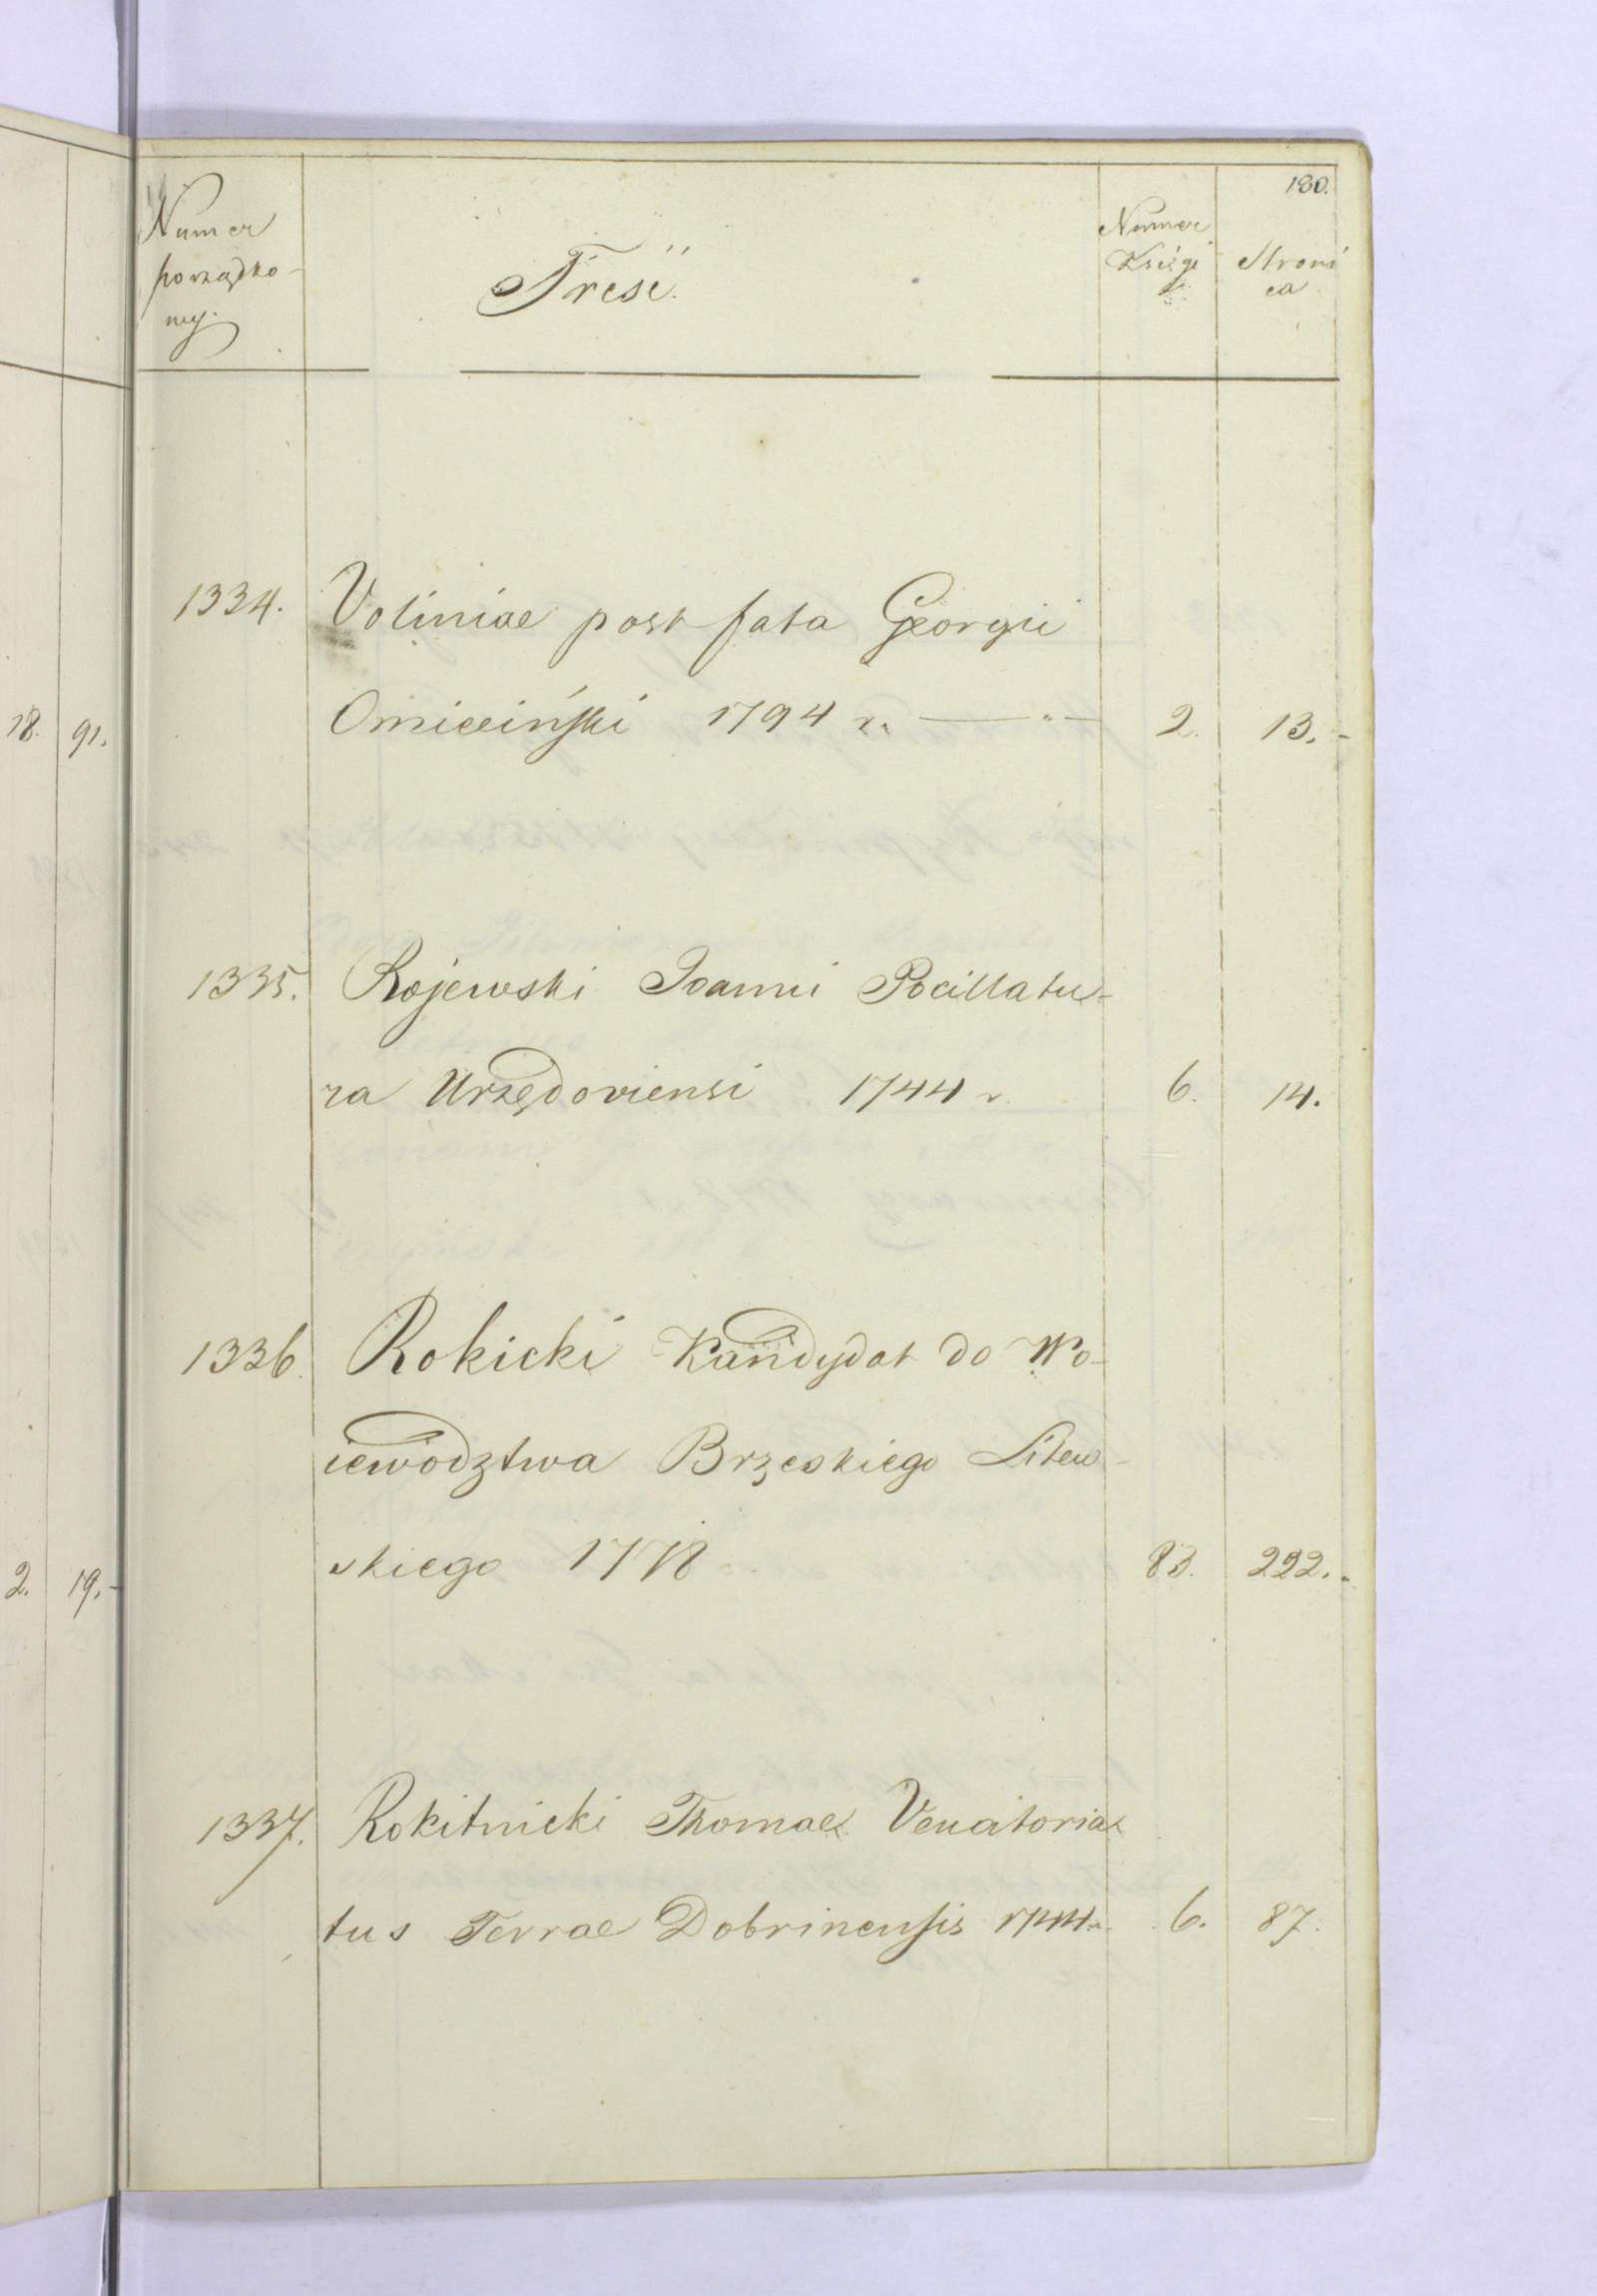 180.
Numer
porządko-
wy.
Treść.
Numer
Księgi
Stroni
ca
1334. Voliniae post fata Georgii
Omieciński 1794 r. 2. 13.-
18. 91.
1335. Rojewski Joanni Pocillatu-
ra Urzędoviensi 1744 r. 6. 14.
1336. Rokicki Kandydat do Wo-
iewodztwa Brzeskiego Litew-
skiego 1778 83. 222.-
2. 19.-
1337. Rokitnicki Thomae Venatoria
tus Terrae Dobrinensis 1744 r. 6. 87.